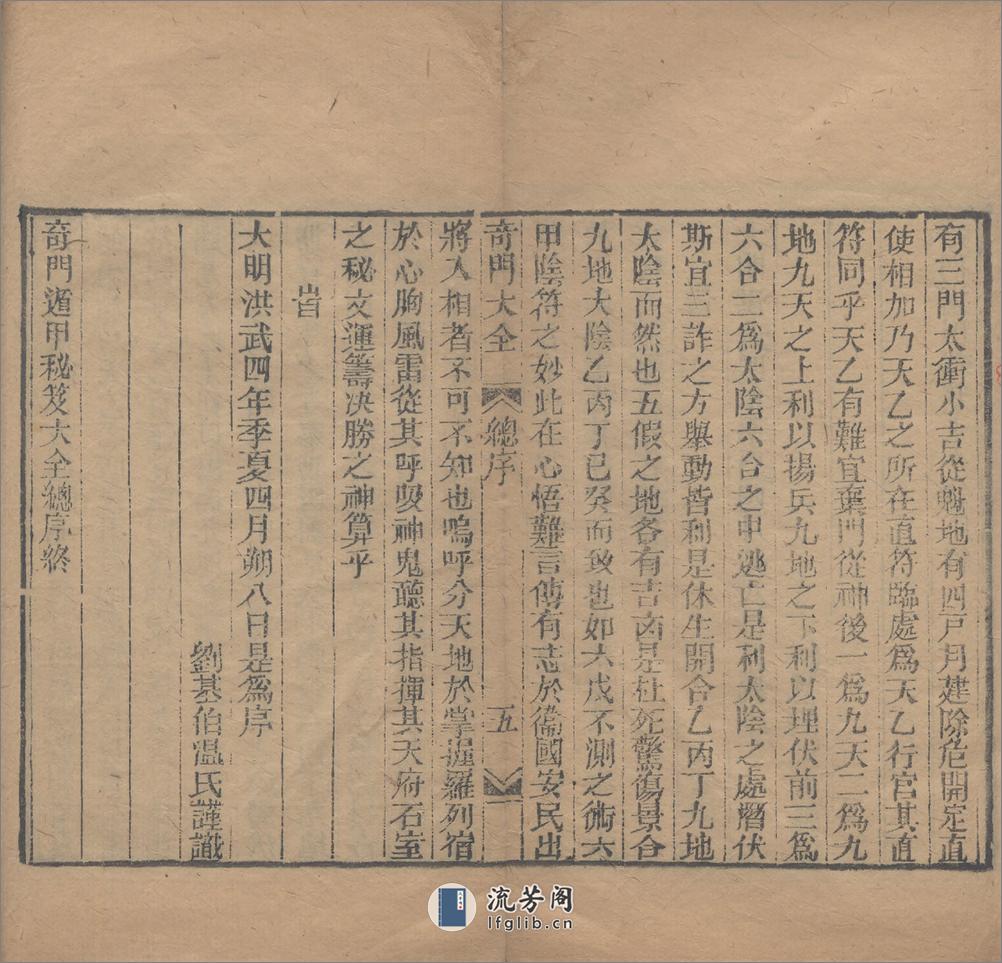 有三門太衝小吉從魁地有四戸月建除危開定直
使相加乃天乙之所在直符臨處爲天乙行宫其直
符同乎天乙有難宜葉門從神後一爲九天二爲九
地九天之上利以揚兵九地之下利以埋伏前三爲
六合二爲太陰六合之中逃亡是利太陰之處暦伏
斯宜三詐之方舉動皆利是休生開合乙丙丁九地
太陰而然也五假之地各有吉㐫是杜死驚傷景合
九地大陰乙丙丁已癸而致也如六戊不測之術六
甲陰符之妙此在心悟難言傳有志於衞國安民出
奇門大全 總序 五
將入相者不可不知也嗚呼分天地於掌握羅列宿
於心胸風雷從其呼吸神鬼聽其指揮其天府石室
之秘文運籌决勝之神算乎
旹
大明洪武四年季夏四月朔八日是爲序
劉基伯溫氏謹識
奇門遁甲秘笈大全總序終
流芳阁
lfglib.cn